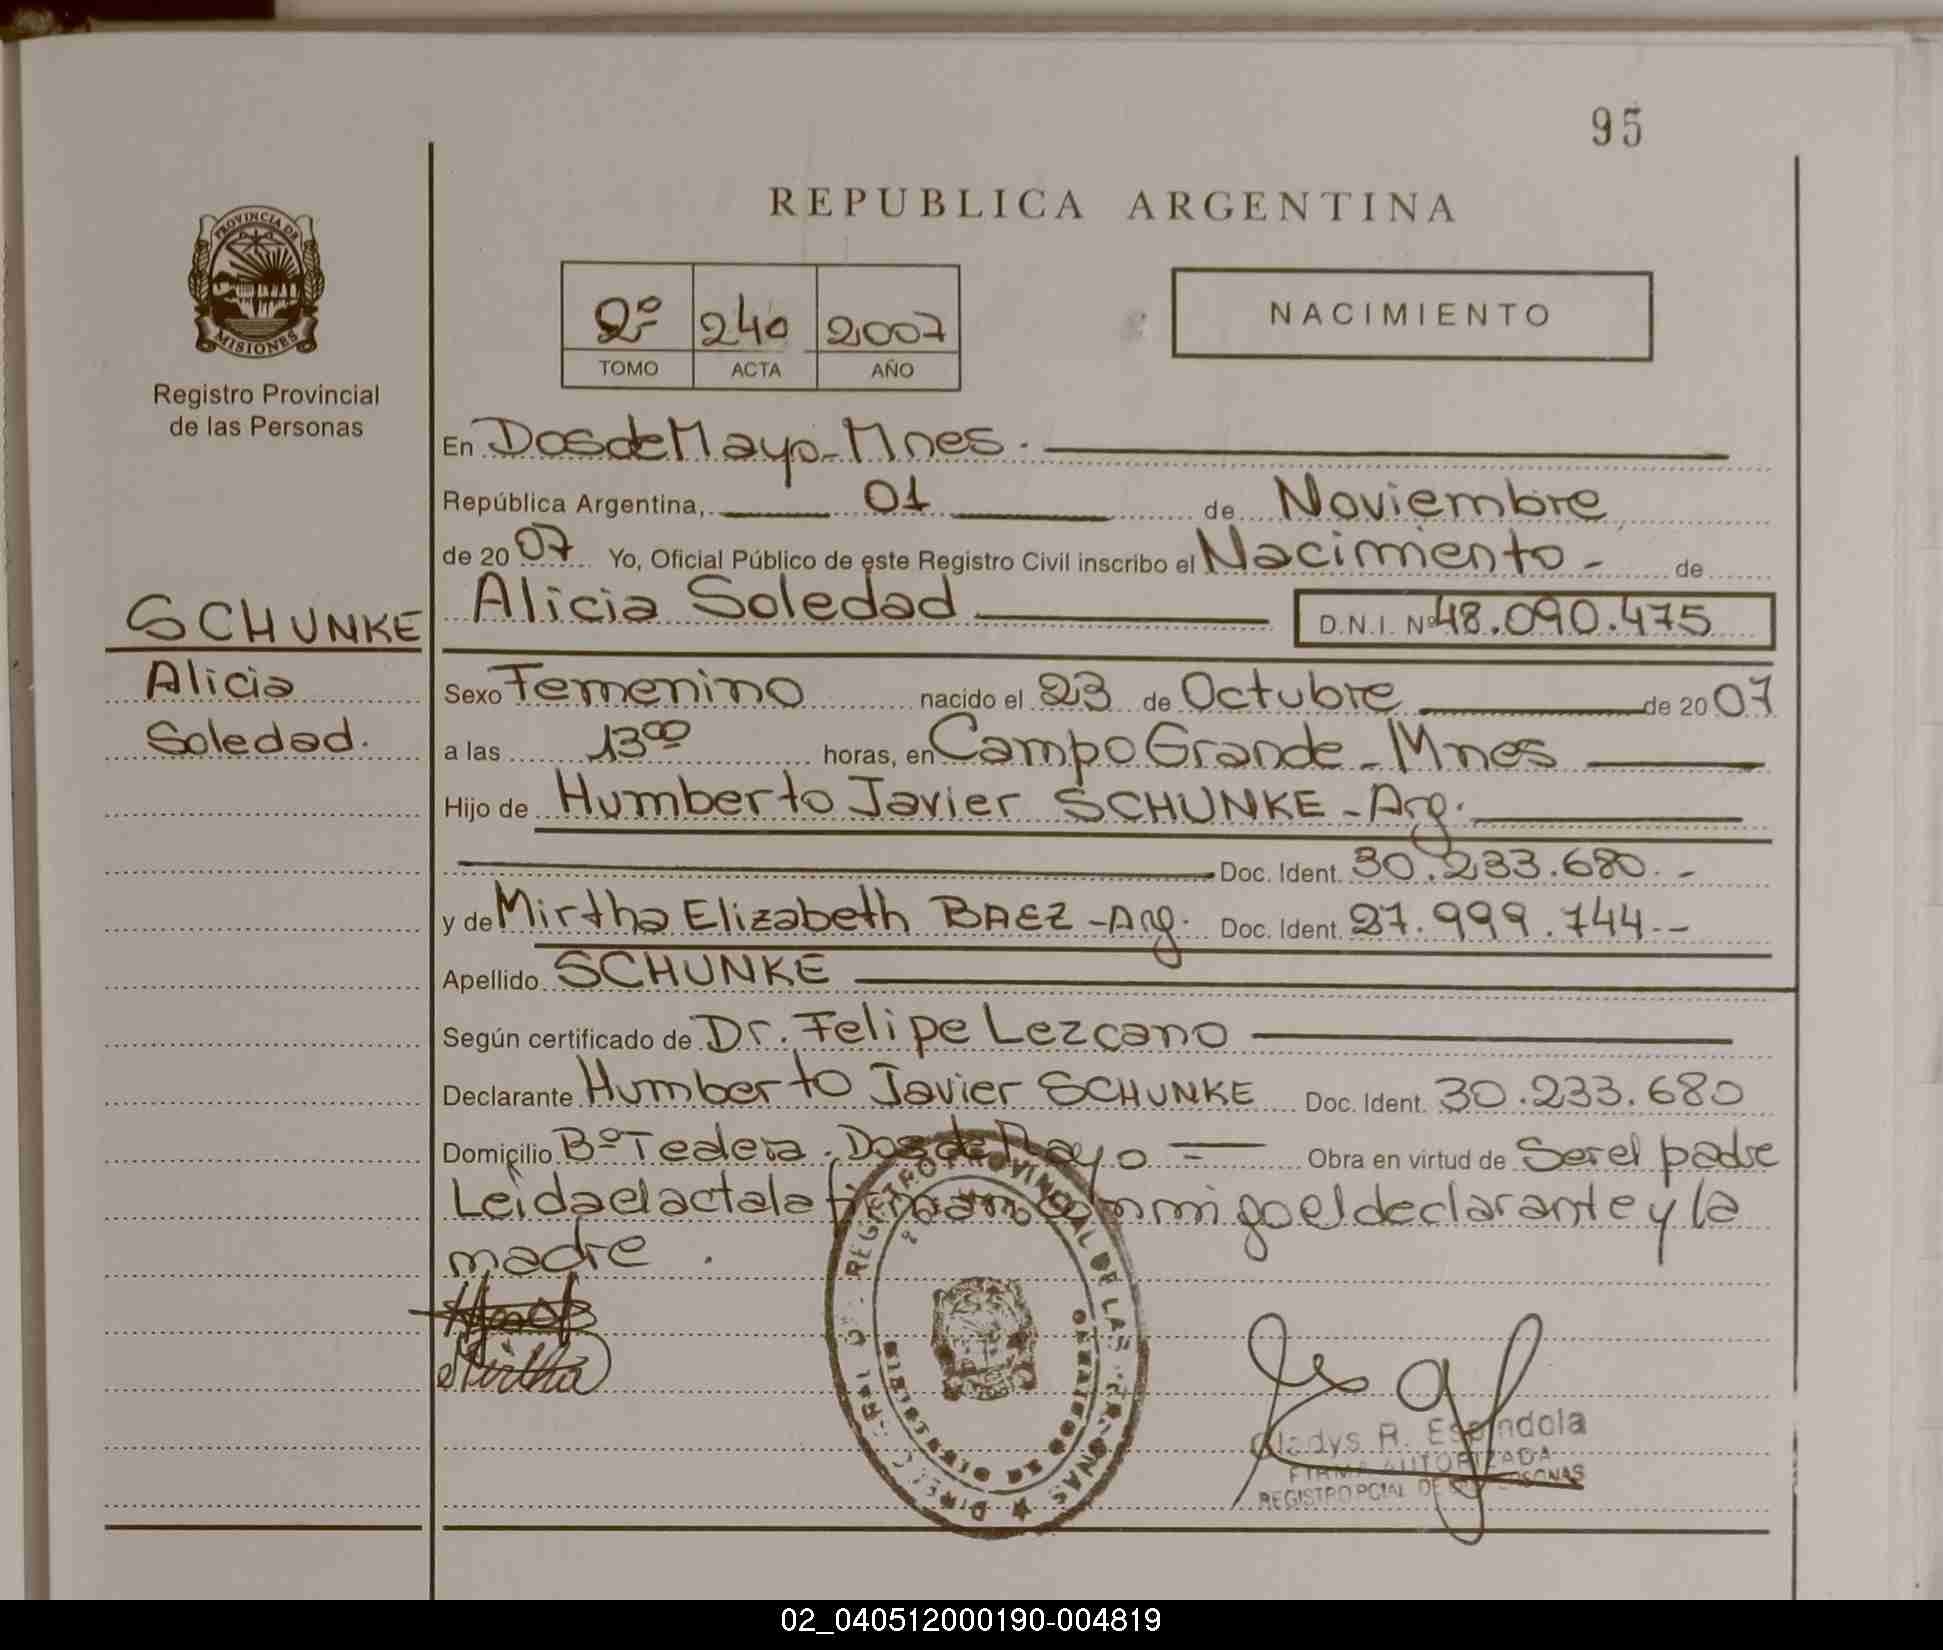 95
REPUBLICA ARGENTINA
PROVINCIA DE
MISIONES
Registro Provincial
de las Personas
2º 240 2007
TOMO ACTA AÑO
NACIMIENTO
En Dos de Mayo - Mnes.
República Argentina, 01 de Noviembre
de 2007 Yo, Oficial Público de este Registro Civil inscribo el Nacimiento - de
Alicia Soledad D.N.I. Nº 48.090.475
SCHUNKE
Alicia
Soledad.
Sexo Femenino nacido el 23 de Octubre de 2007
a las 13⁰⁰ horas, en Campo Grande - Mnes
Hijo de Humberto Javier SCHUNKE - Arg.
Doc. Ident. 30.233.680.-
y de Mirtha Elizabeth BAEZ - Arg. Doc. Ident. 27.999.744.-
Apellido SCHUNKE
Según certificado de Dr. Felipe Lezcano
Declarante Humberto Javier SCHUNKE Doc. Ident. 30.233.680
Domicilio Bº Tedera. Dos de Mayo Obra en virtud de Ser el padre
Leida el acta la firman conmigo el declarante y la
madre.
Mirtha
REGISTRO PROVINCIAL DE LAS PERSONAS
Gladys R. Espindola
FIRMA AUTORIZADA
REGISTRO PCIAL DE LAS PERSONAS
02_040512000190-004819